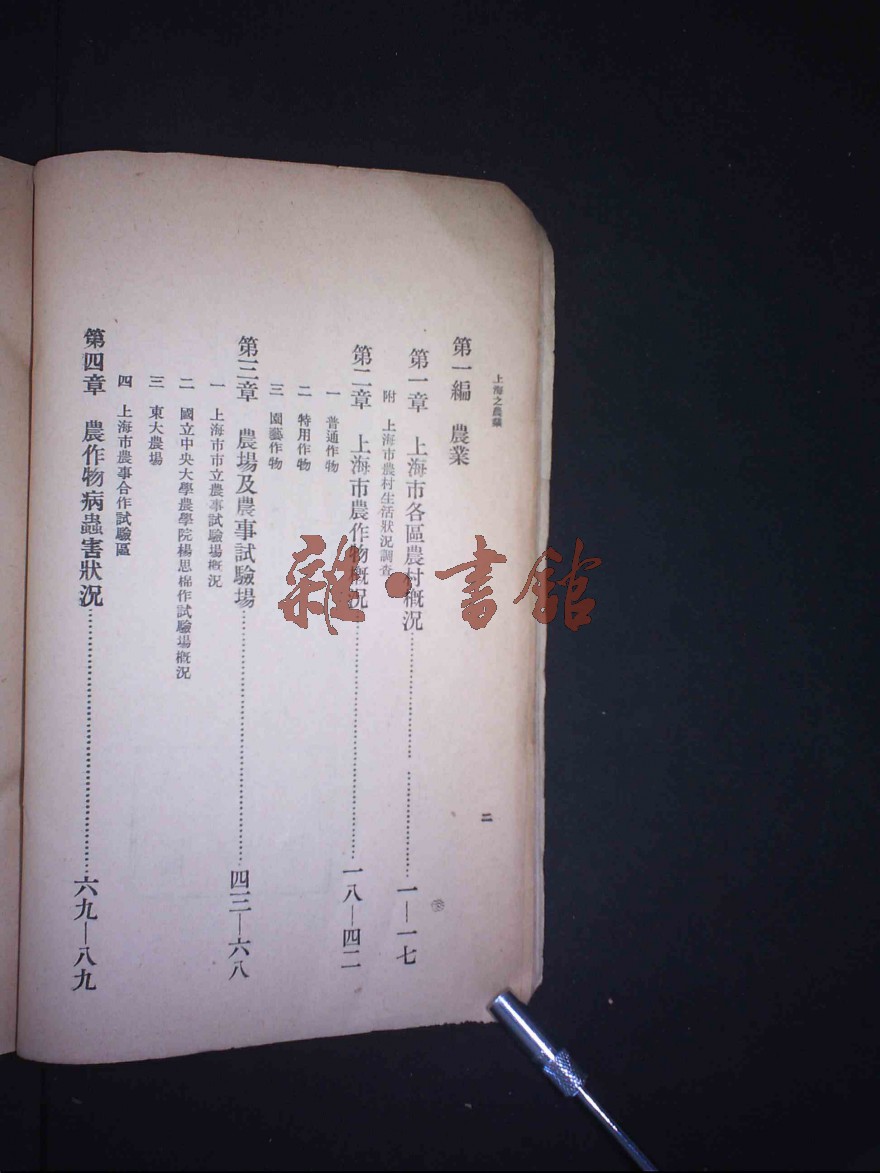 上海之農業
二
第一編　農業
第一章　上海市各區農村概況………………一—一七
附　上海市農村生活狀況調查
第二章　上海市農作物概況………………一八—四二
一　普通作物
二　特用作物
三　園藝作物
第三章　農場及農事試驗場………………四三—六八
一　上海市市立農事試驗場概況
二　國立中央大學農學院楊思棉作試驗場概況
三　東大農場
四　上海市農事合作試驗區
第四章　農作物病蟲害狀況………………六九—八九
雜·書館